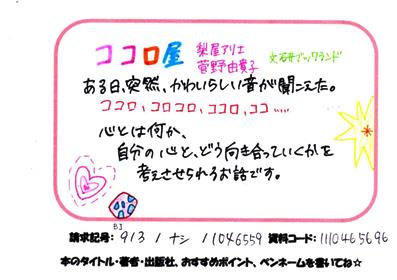 ココロ屋 梨屋アリエ
菅野由貴子 文研ブックランド
ある日、突然、かわいらしい音が聞こえた。
ココロ、コロコロ、ココロ、ココ……
心とは何か、
自分の心と、どう向き合っていくかを
考えさせられるお話です。
BJ
請求記号: 913 / ナシ / 11046559 資料コード: 1110465696
本のタイトル・著者・出版社、おすすめポイント、ペンネームを書いてね☆